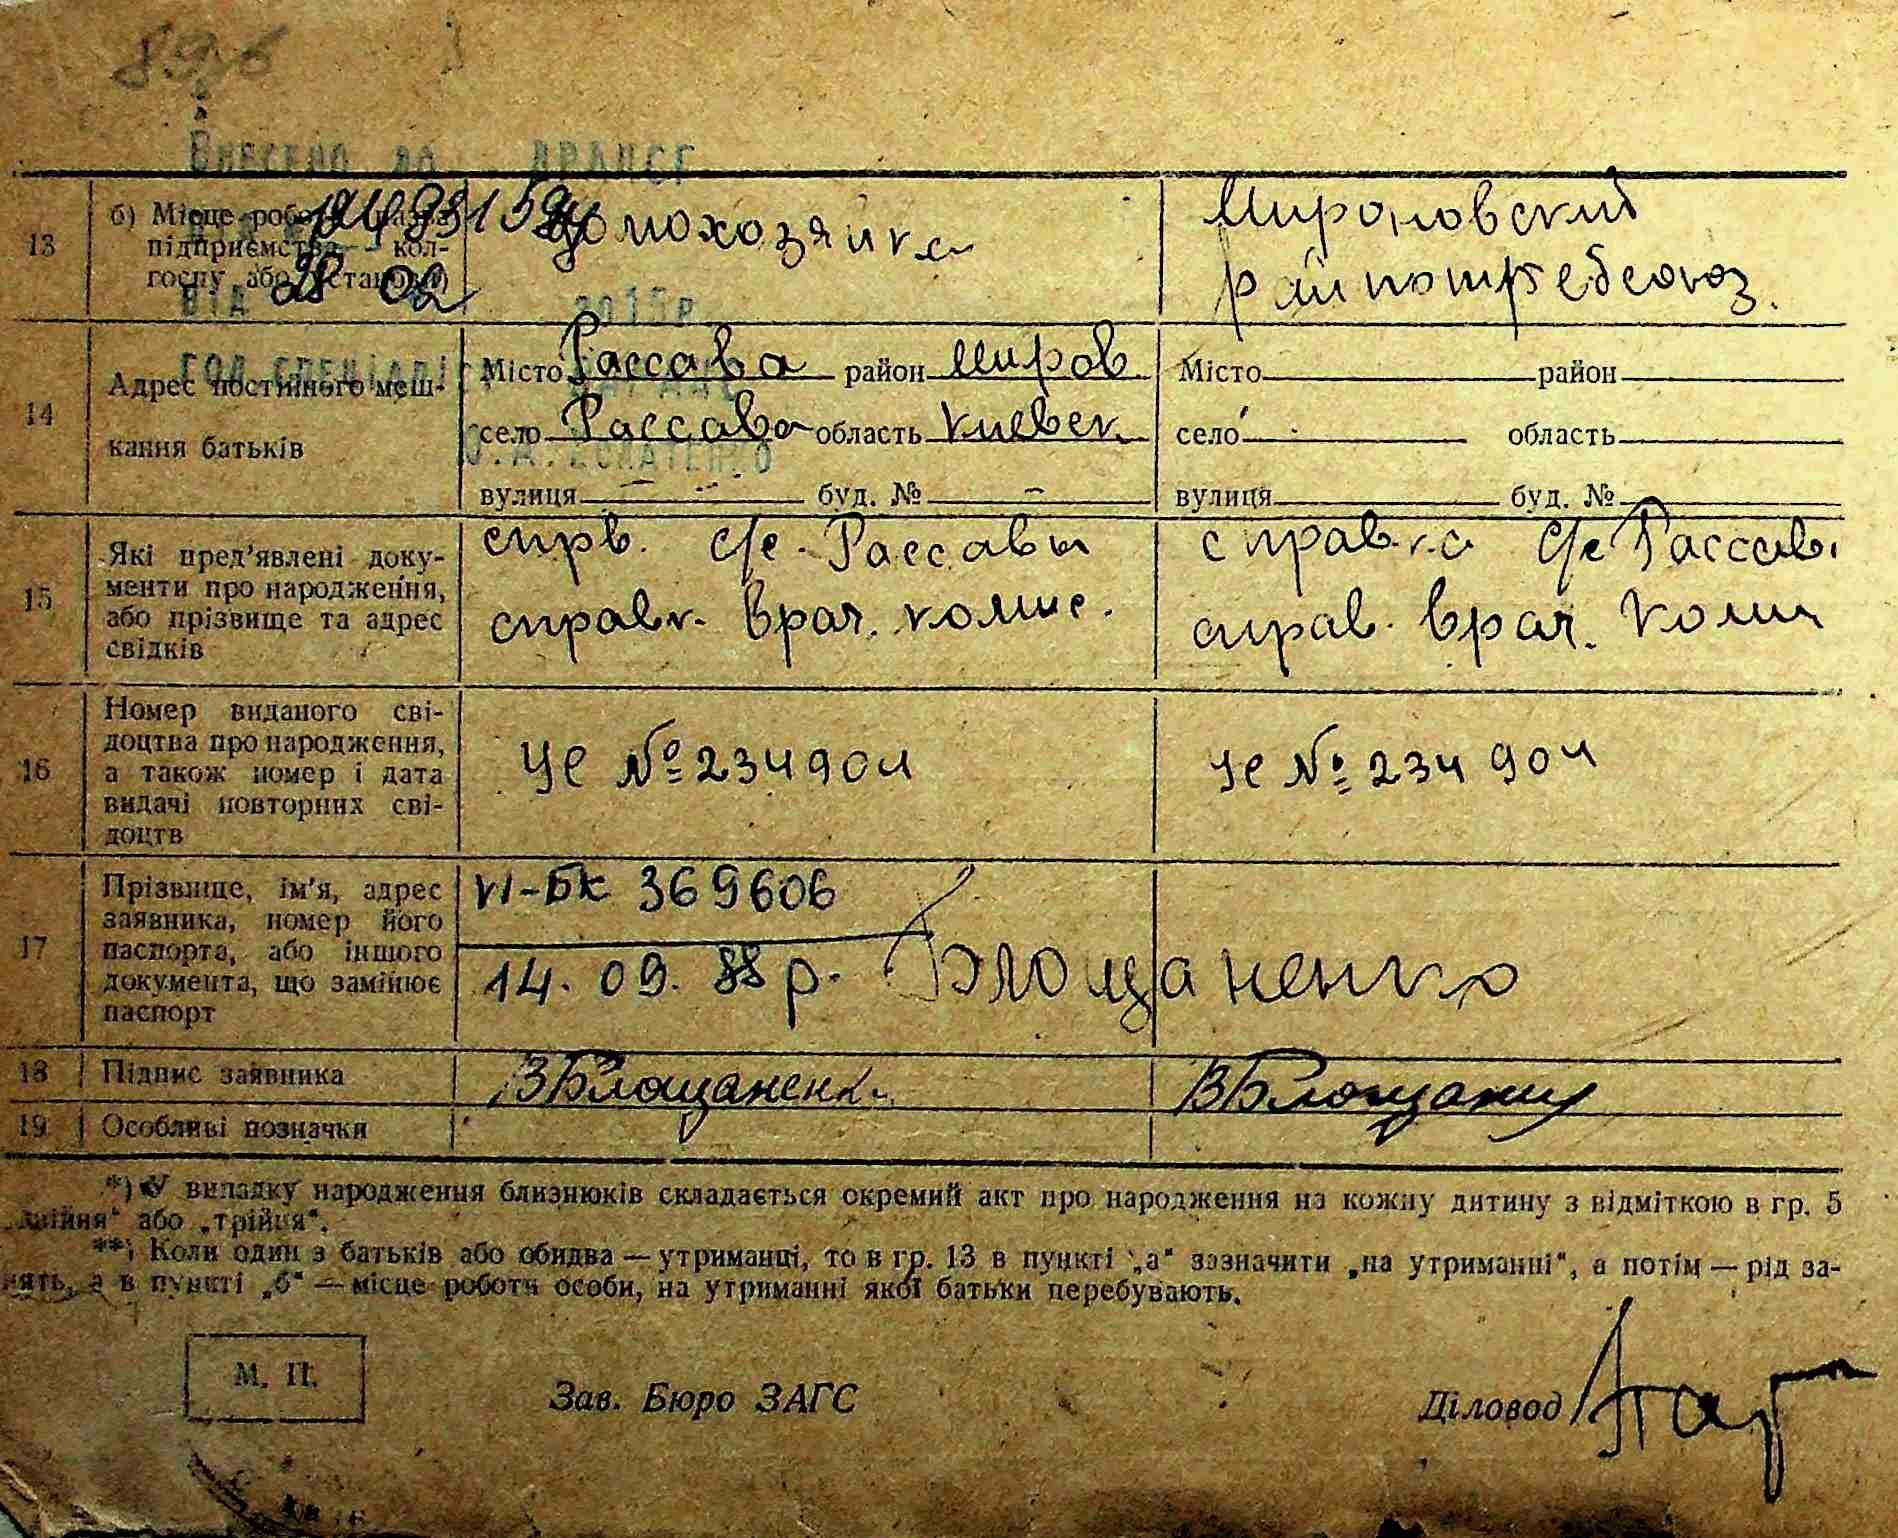 Внесено до ДРАЦСГ
13
б) Місце роботи (назва підприємства, колгоспу або установи)
домохозяйка
Мироновский
райпотребсоюз.
від 28 02 2015р
14
Адрес постійного мешкання батьків
Місто Рассава район Миров.
село Рассава область Киевск
вулиця — буд. № —
Місто район
село область
вулиця буд. №
15
Які пред'явлені документи про народження, або прізвище та адрес свідків
спрв. с/с. Рассавы
справк. врач. комис.
справка с/с Рассав
справ. врач. Коми
16
Номер виданого свідоцтва про народження, а також номер і дата видачі повторних свідоцтв
УС № 234904
УС № 234904
17
Прізвище, ім'я, адрес заявника, номер його паспорта, або іншого документа, що замінює паспорт
VI-БК 369606
14. 09. 88 р. Блощаненко
18
Підпис заявника
ВБлощаненк
ВБлощанен
19
Особливі позначки
*) У випадку народження близнюків складається окремий акт про народження на кожну дитину з відміткою в гр. 5
„двійня“ або „трійця“.
**) Коли один з батьків або обидва — утриманці, то в гр. 13 в пункті „а“ зазначити „на утриманні“, а потім — рід за-
нять, а в пункті „б“ — місце роботи особи, на утриманні якої батьки перебувають.
М. П.
Зав. Бюро ЗАГС
Діловод